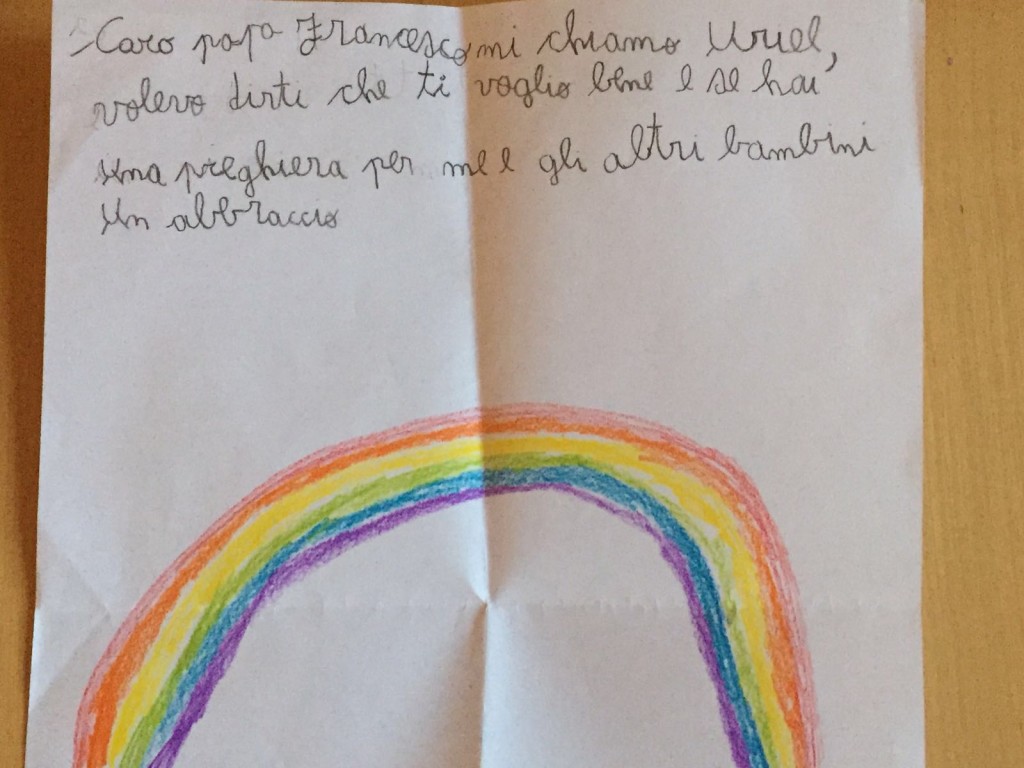 Caro papa Francesco, mi chiamo Uriel,
volevo dirti che ti voglio bene e se hai
una preghiera per me e gli altri bambini
un abbraccio